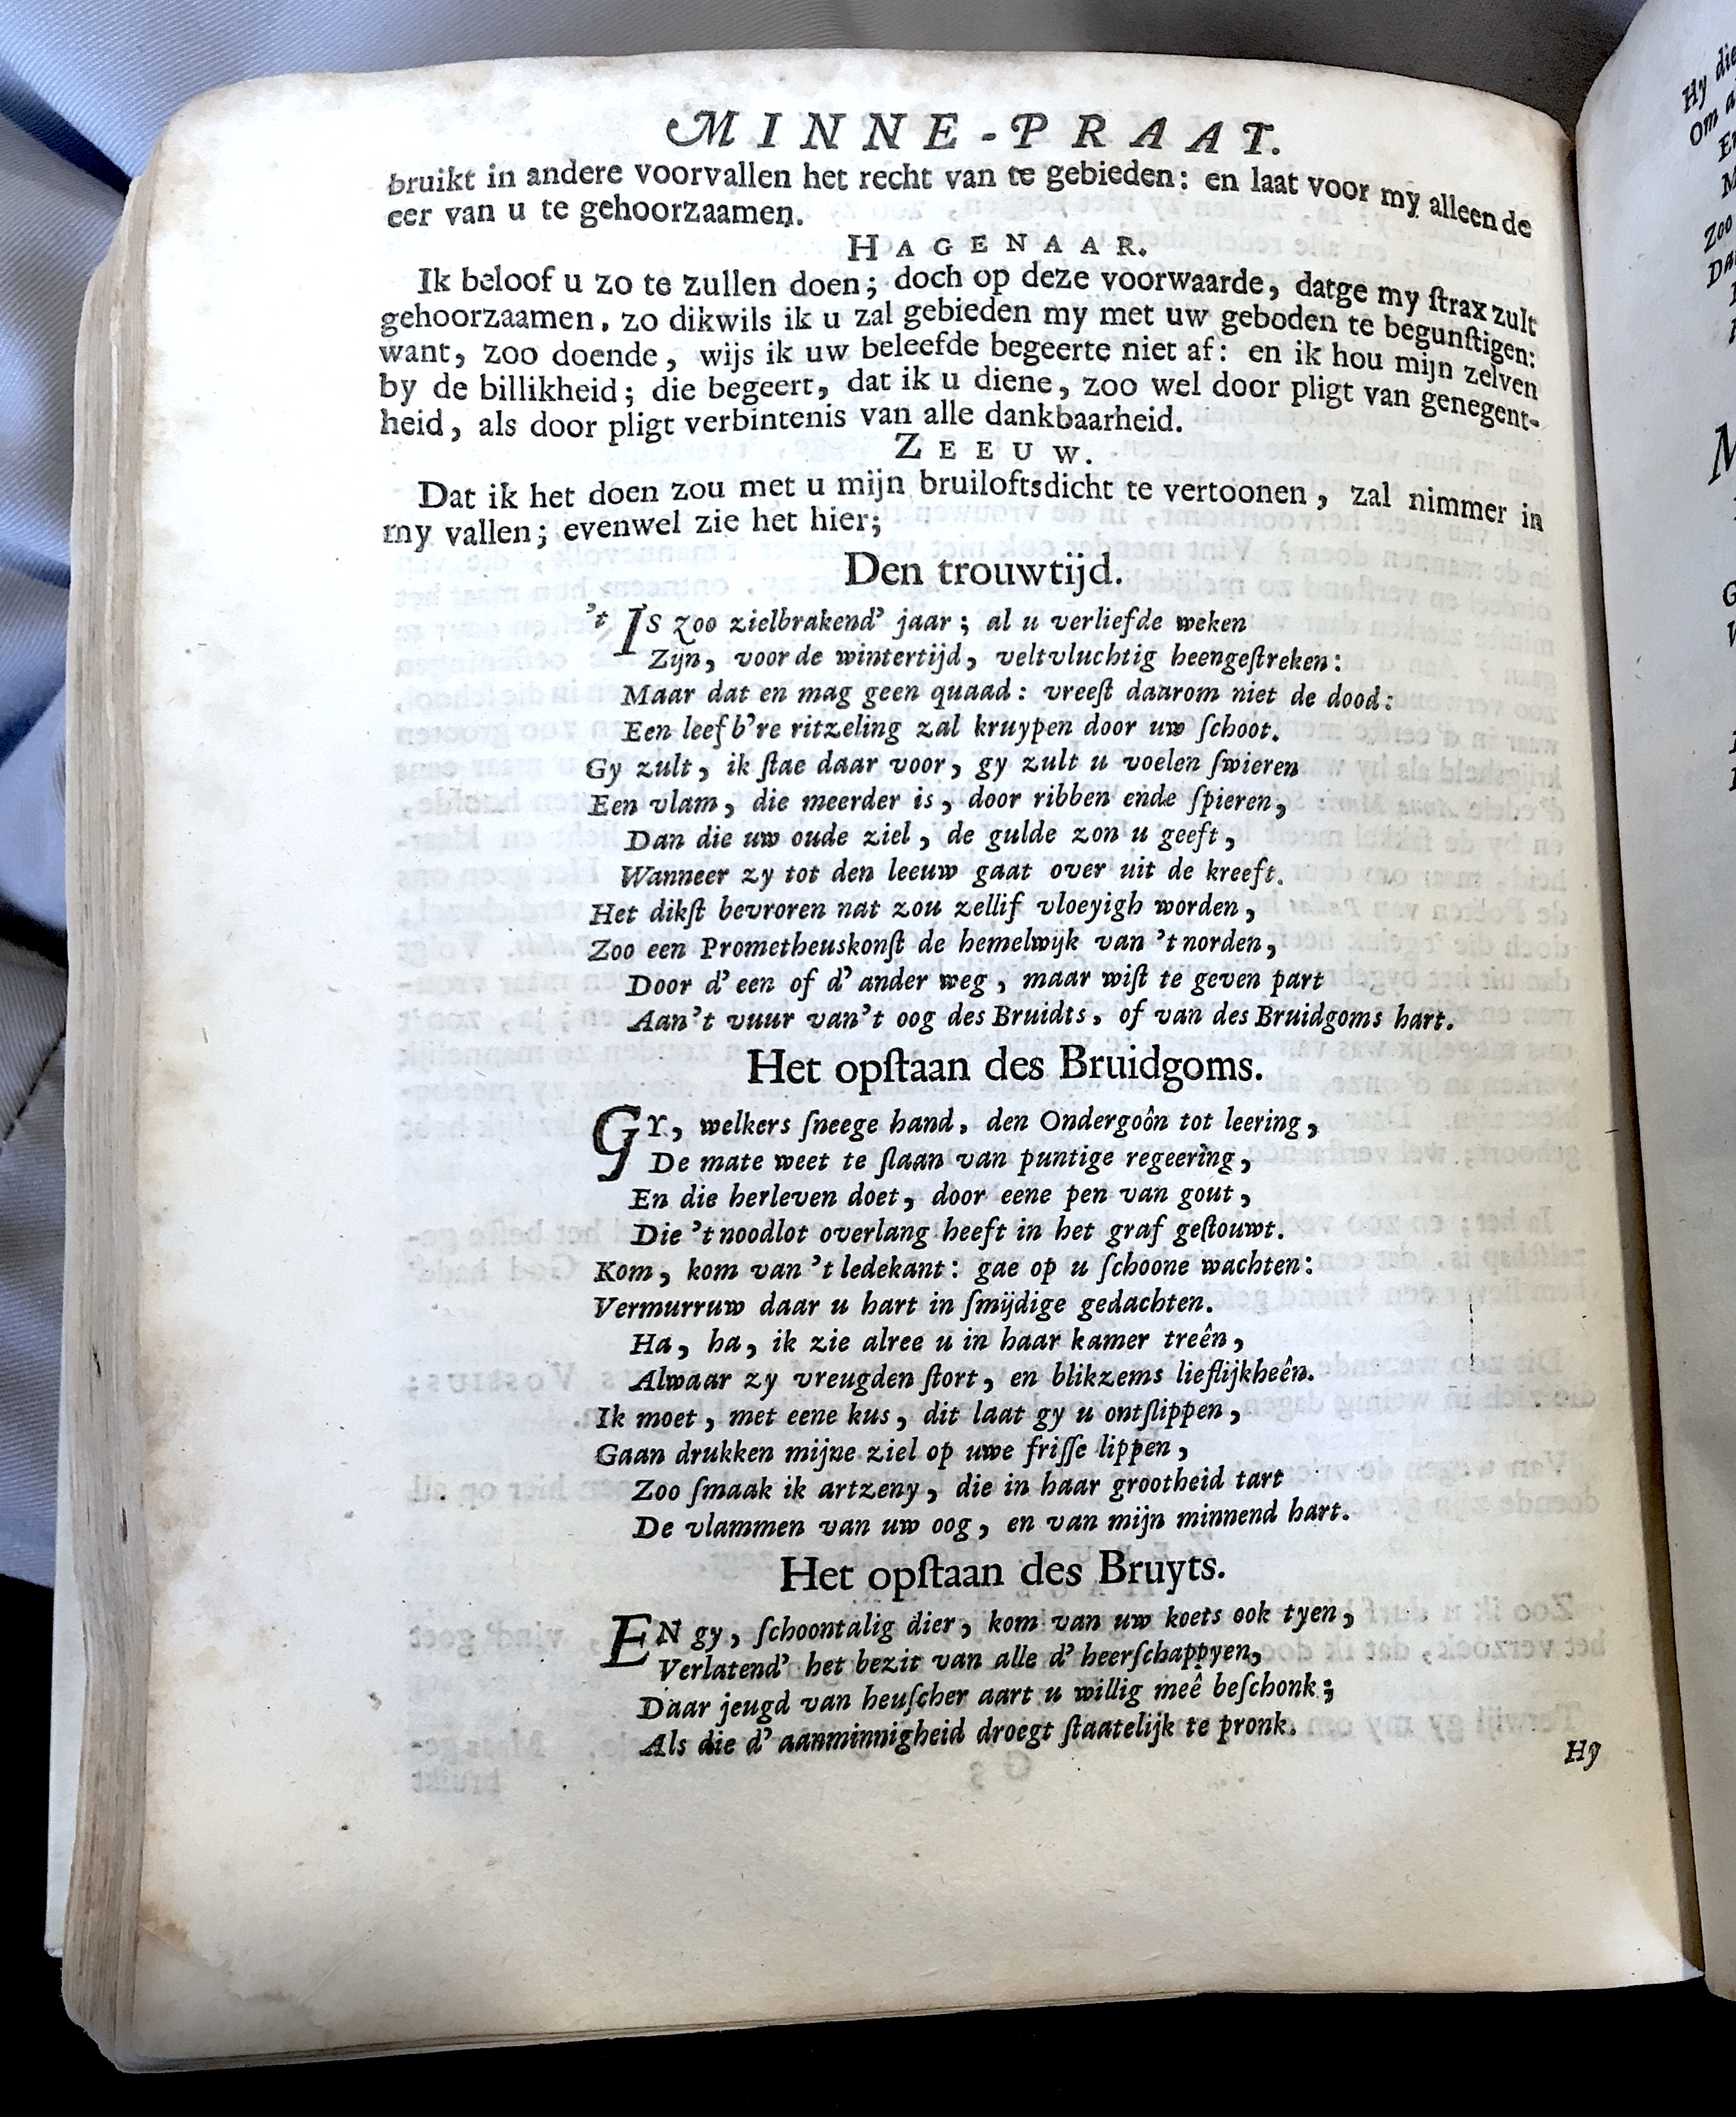 MINNE-PRAAT.
bruikt in andere voorvallen het recht van te gebieden: en laat voor my alleen de
eer van u te gehoorzaamen.
HAGENAAR.
Ik beloof u zo te zullen doen; doch op deze voorwaarde, datge my ſtrax zult
gehoorzaamen, zo dikwils ik u zal gebieden my met uw geboden te begunſtigen:
want, zoo doende, wijs ik uw beleefde begeerte niet af: en ik hou mijn zelven
by de billikheid; die begeert, dat ik u diene, zoo wel door pligt van genegent-
heid, als door pligt verbintenis van alle dankbaarheid.
ZEEUW.
Dat ik het doen zou met u mijn bruiloftsdicht te vertoonen, zal nimmer in
my vallen; evenwel zie het hier;
Den trouwtijd.
't Is zoo zielbrakend' jaar; al u verliefde weken
Zijn, voor de wintertijd, veltvluchtig heengeſtreken:
Maar dat en mag geen quaad: vreeſt daarom niet de dood:
Een leefb're ritzeling zal kruypen door uw ſchoot.
Gy zult, ik ſtae daar voor, gy zult u voelen ſwieren
Een vlam, die meerder is, door ribben ende ſpieren,
Dan die uw oude ziel, de gulde zon u geeft,
Wanneer zy tot den leeuw gaat over uit de kreeft.
Het dikſt bevroren nat zou zellif vloeyigh worden,
Zoo een Prometheuskonſt de hemelwijk van 't norden,
Door d' een of d' ander weg, maar wiſt te geven part
Aan 't vuur van 't oog des Bruidts, of van des Bruidgoms hart.
Het opſtaan des Bruidgoms.
GY, welkers ſneege hand, den Ondergoôn tot leering,
De mate weet te ſlaan van puntige regeering,
En die herleven doet, door eene pen van gout,
Die 't noodlot overlang heeft in het graf geſtouwt.
Kom, kom van 't ledekant: gae op u ſchoone wachten:
Vermurruw daar u hart in ſmijdige gedachten.
Ha, ha, ik zie alree u in haar kamer treên,
Alwaar zy vreugden ſtort, en blikzems lieflijkheên.
Ik moet, met eene kus, dit laat gy u ontſlippen,
Gaan drukken mijne ziel op uwe friſſe lippen,
Zoo ſmaak ik artzeny, die in haar grootheid tart
De vlammen van uw oog, en van mijn minnend hart.
Het opſtaan des Bruyts.
EN gy, ſchoontalig dier, kom van uw koets ook tyen,
Verlatend' het bezit van alle d' heerſchappyen,
Daar jeugd van heuſcher aart u willig meê beſchonk;
Als die d' aanminnigheid droegt ſtaatelijk te pronk.
Hy